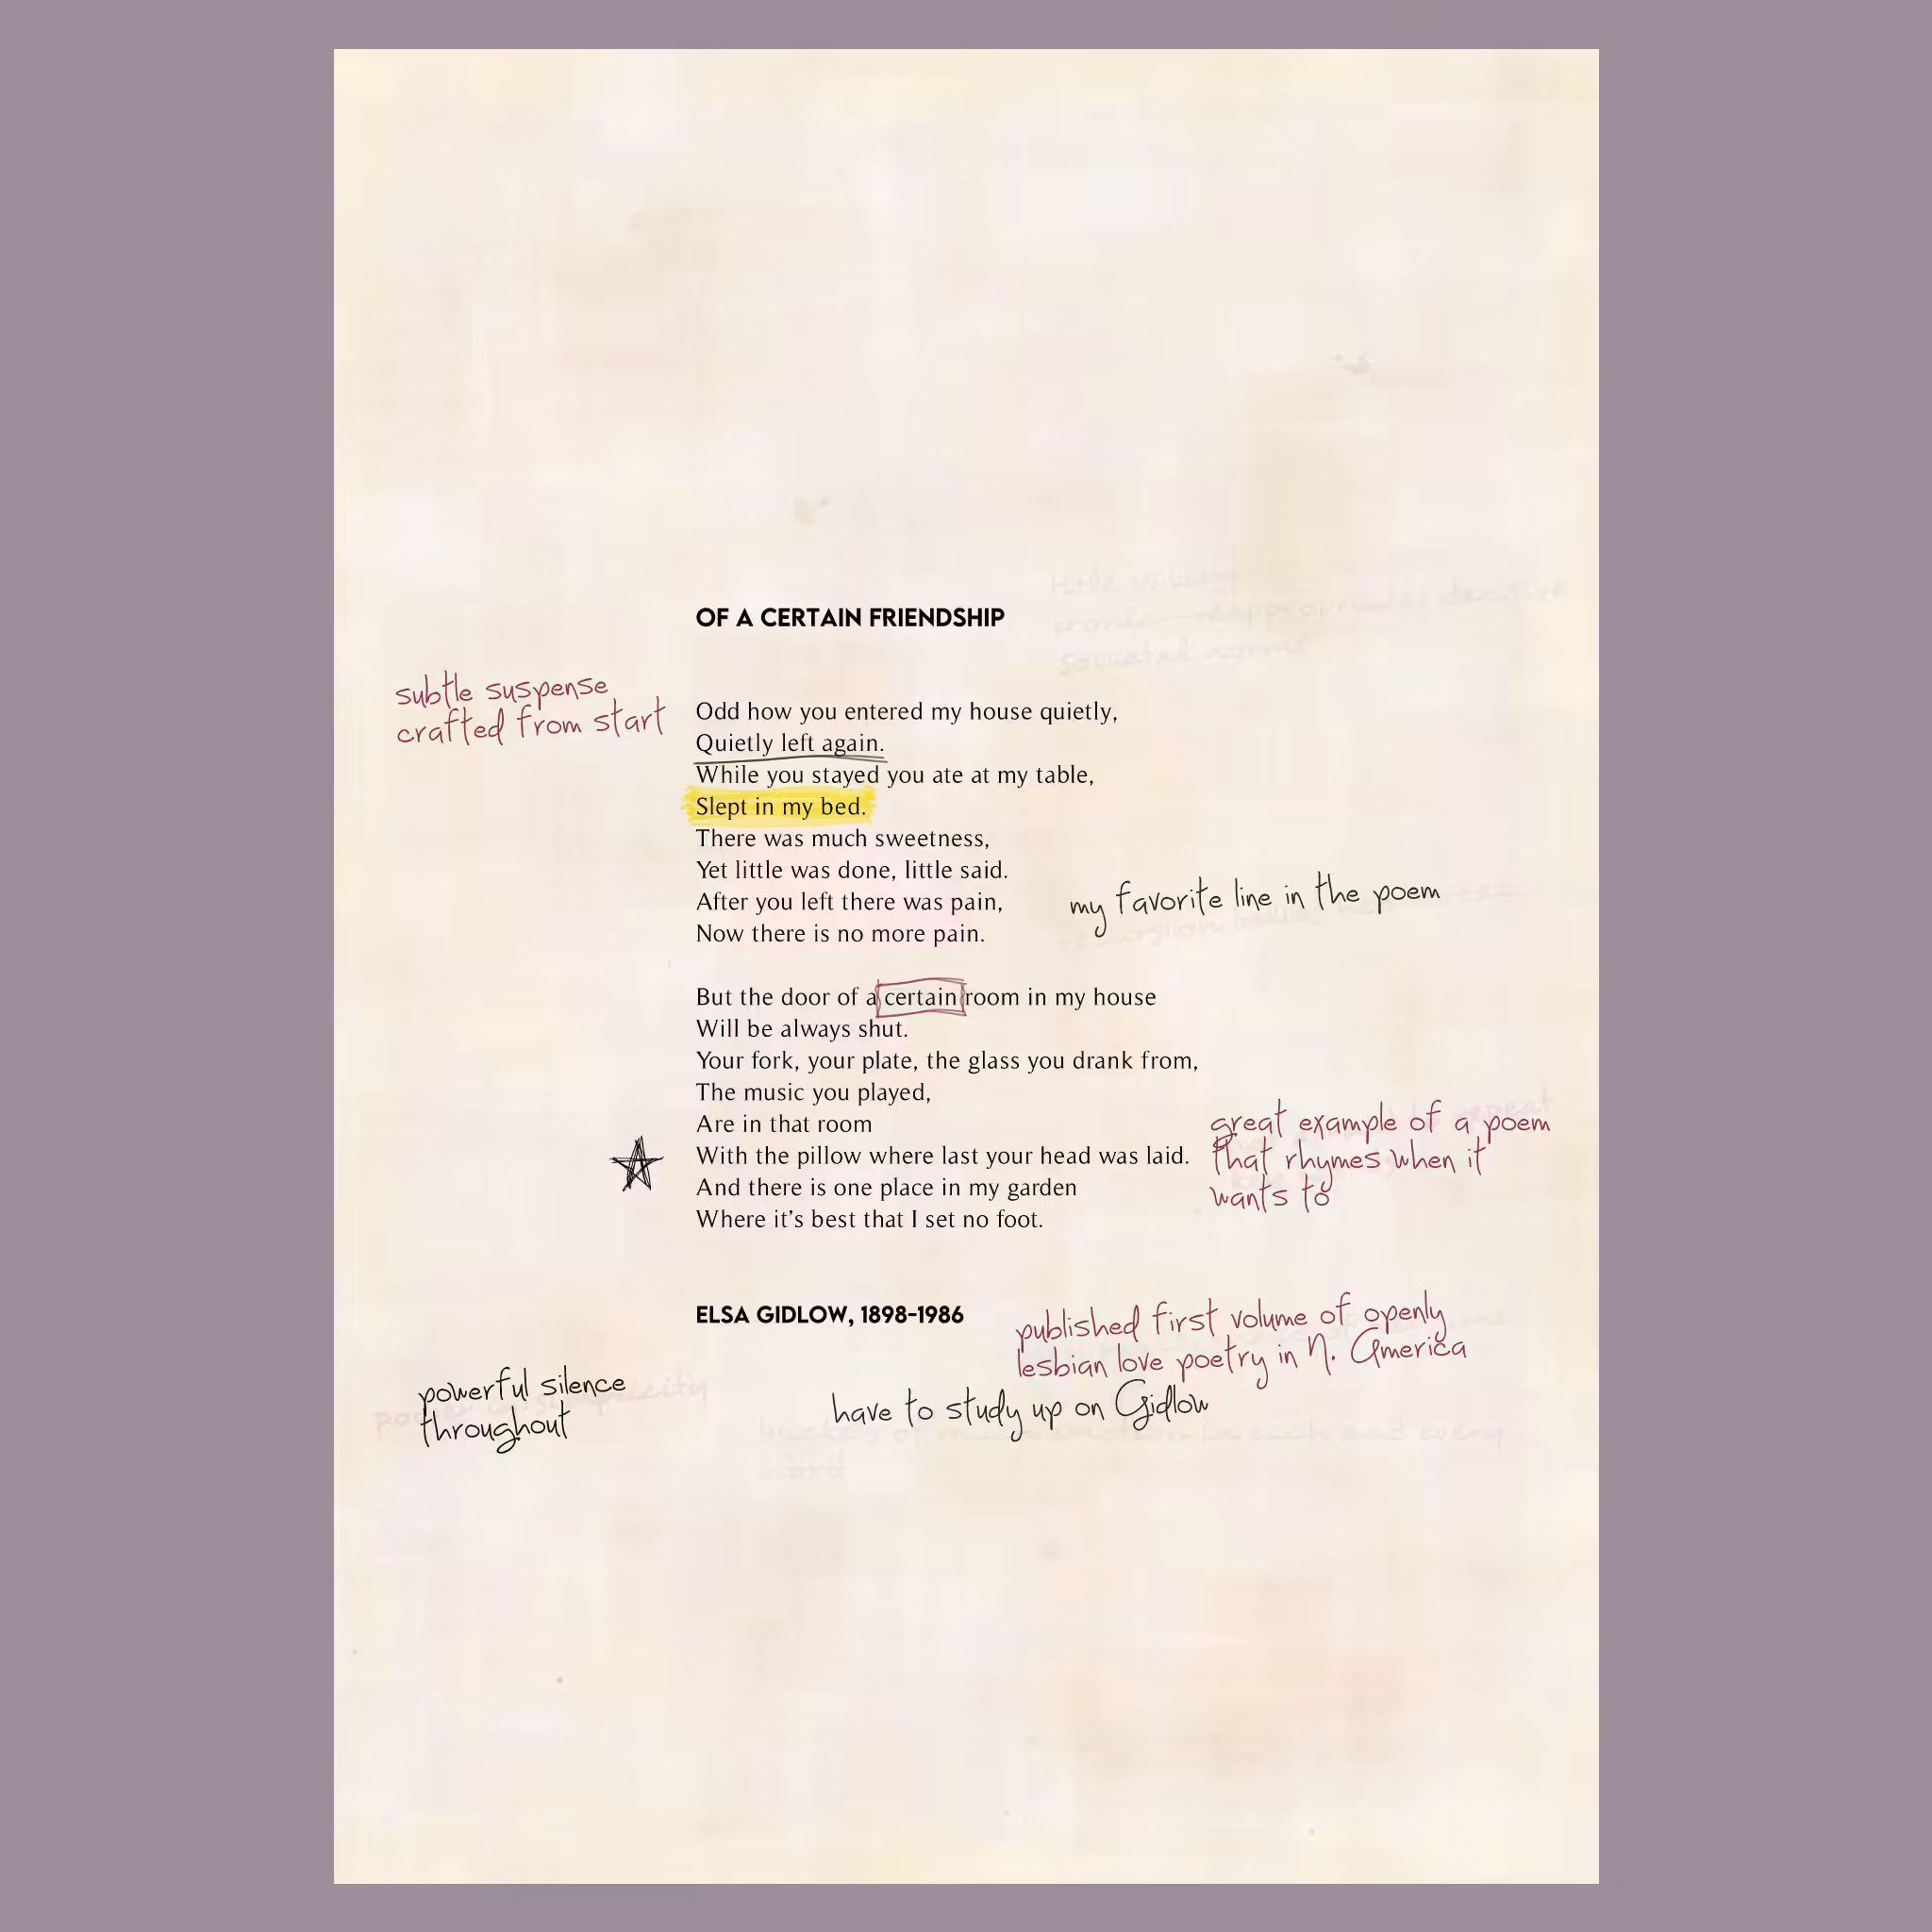 OF A CERTAIN FRIENDSHIP
subtle suspense
crafted from start
Odd how you entered my house quietly,
Quietly left again.
While you stayed you ate at my table,
Slept in my bed.
There was much sweetness,
Yet little was done, little said.
After you left there was pain,
my favorite line in the poem
Now there is no more pain.
But the door of a certain room in my house
Will be always shut.
Your fork, your plate, the glass you drank from,
The music you played,
Are in that room
With the pillow where last your head was laid.
And there is one place in my garden
Where it’s best that I set no foot.
great example of a poem
that rhymes when it
wants to
ELSA GIDLOW, 1898-1986
published first volume of openly
lesbian love poetry in N. America
powerful silence
throughout
have to study up on Gidlow